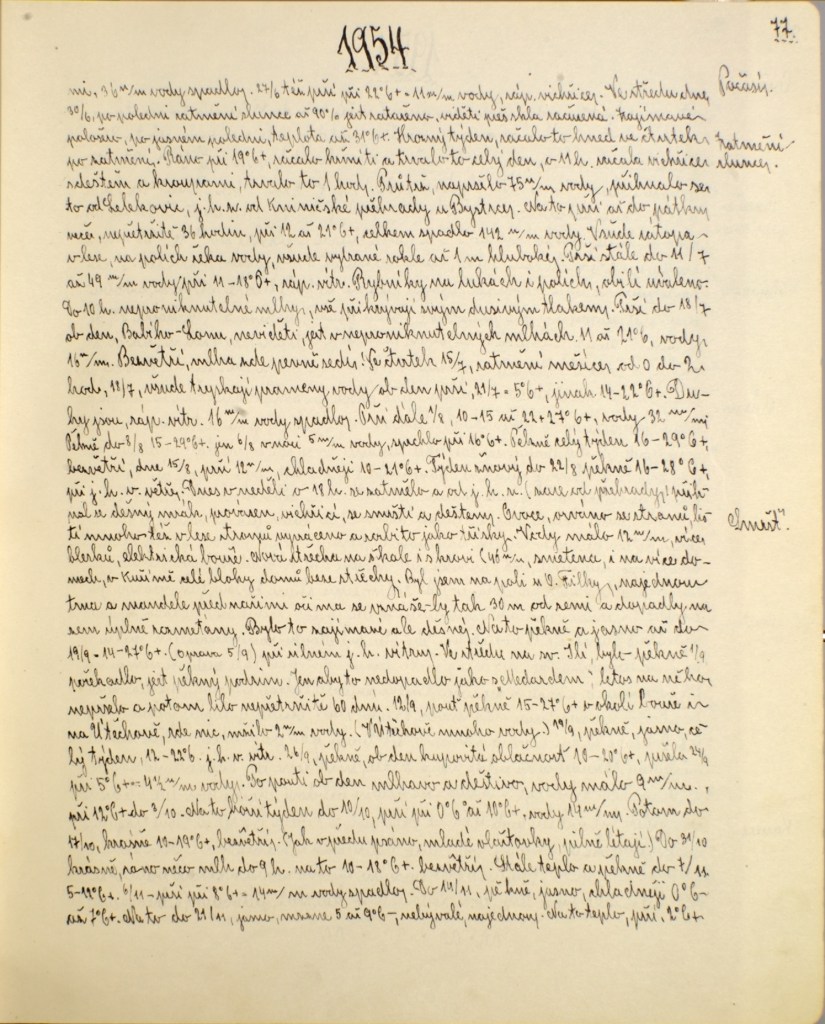 1954
77.
mi, 36 m/m vody spadlo. 27/6 též prší při 22°C+ = 11 m/m vody, záp. vichřice. Ve středu dne,
Počasí.
30/6, po poledni zatmění slunce až 90% jest zataženo, viděti přes skla začazená. Zajímavé
položiv, po jasném poledni, teplota až 31°C+. Hrozný týden, začalo to hned ve čtvrtek
Zatmění
po zatmění. Ráno při 19°C+, začalo hřmíti a trvalo to celý den, o 11 h. začala vichřice
slunce.
s deštěm a kroupami, trvalo to 1 hod. Průtrž, napršelo 75 m/m vody, přihnalo se
to od Lelekovic, j. h. z. od Kniničské přehrady u Bystrce. Na to prší až do pátku
večer, nepřetržitě 36 hodin, při 12 až 21°C+, celkem spadlo 142 m/m vody. Všude zátopa
v lese, na polích řeka vody, všude vybrané rokle až 1 m hluboké. Prší stále do 11/7
až 49 m/m vody při 11-18°C+, záp. vítr. Rybníky na lukách i polích, obilí uváleno.
Do 10 h. neproniknutelné mlhy, vše přikrývají svým dusivým tlakem. Prší do 18/7
ob den, Babího-Lomu, neviděti, jest v neproniknutelných mlhách. 11 až 21°C, vody,
16 m/m. Bezvětří, mlha zde pevně sedí! Ve čtvrtek 15/7, zatmění měsíce od 0 do 2
hod, 18/7, všude tryskají prameny vody ob den prší, 21/7 = 5°C+, jinak 14-22°C+. Du-
hy jsou, záp. vítr. 16 m/m vody spadlo. Prší dále 1/8, 10-15 až 22+27°C+, vody 32 m/m
Pěkně do 8/8 15-29°C+. jen 6/8 v noci 5 m/m vody, spadlo při 16°C+. Pěkně celý týden 16-29°C+,
bezvětří, dne 15/8, prší 12 m/m, chladněji 10-21°C+. Týden žňový do 22/8 pěkně 16-28°C+,
při j. h. v. větru. Dnes v neděli v 18 h. se zatmělo a od j. h. z. (zase od přehrady) přih-
nal se děsný mrak, provazen, vichřicí, se smrští a deštem. Ovoce, orváno se stromů, lis-
Smršť.
tí mnoho též v lese stromů vyvráceno a rozbito jako třísky. Vody málo 12 m/m, více
blesků, elektrická bouře. Nová střecha na škole i s krovi (40 m), smetena, i na více do-
mech, v Kuřimě celé bloky domů beze střechy. Byl jsem na poli u O. Filky, najednou
tma a mandele před našimi očima se vznášely tak 30 m od země a dopadly na
zem úplně rozmetány. Bylo to zajímavé ale děsné. Na to pěkně a jasno až do
19/9 - 14-27°C+. (Oprava 5/9) při silném j. h. vitru. Ve středu na sv. Jilí, bylo pěkně 1/9
pořekadlo, jest pěkný podzim. Jen aby to nedopadlo jako s „Medardem", letos na něho,
nepršelo a potom lilo nepřetržitě 60 dnů. 12/9, pouť pěkně 15-27°C+ v okolí bouře i
na Útěchově, zde nic, mžilo 2 m/m vody. (V Útěchově mnoho vody.) 19/9, pěkně, jasno, ce-
lý týden, 12-22°C. j. h. v. vítr. 26/9, pěkně, ob den kupovitá oblačnost 10-20°C+, pršela 24/9
při 5°C+ = 4½ m/m vody. Po pouti ob den mlhavo a deštivo, vody málo 9 m/m.,
při 12°C+ do 3/10. Na to horší týden do 10/10, prší při 0°C až 10°C+, vody 14 m/m. Potom do
17/10, krásně 10-19°C+, bezvětří. (Jak v předu psáno, mladé vlaštovky, pilně létají.) Do 31/10
krásně, ráno něco mlh do 9 h. na to 10-18°C+. bezvětří. Stále teplo a pěkně do 7/11
5-12°C+. 6/11 - prší při 8°C+ = 14 m/m vody spadlo. Do 14/11, pěkně, jasno, chladněji 0°C-
až 7°C+. Na to do 21/11, jasno, mrzne 5 až 9°C-, nebývalé, najednou. Na to teplo, prší. 2°C+